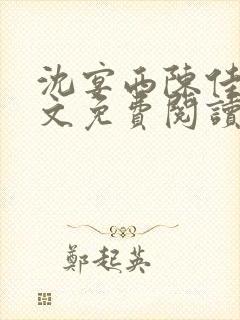 沈宴西陳佳
文免費閱讀
鄭起英